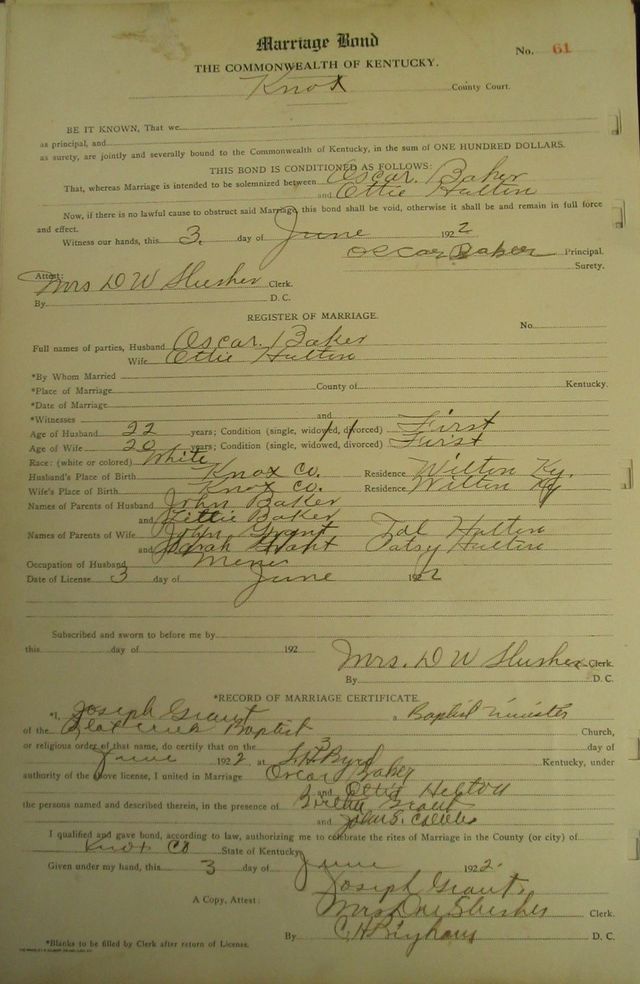 Marriage Bond
No. 61
THE COMMONWEALTH OF KENTUCKY.
Knox County Court.
BE IT KNOWN, That we
as principal, and
as surety, are jointly and severally bound to the Commonwealth of Kentucky, in the sum of ONE HUNDRED DOLLARS.
THIS BOND IS CONDITIONED AS FOLLOWS:
That, whereas Marriage is intended to be solemnized between Oscar. Baker
and Ettie Hulton
Now, if there is no lawful cause to obstruct said Marriage, this bond shall be void, otherwise it shall be and remain in full force
and effect.
Witness our hands, this 3. day of June 1922
Oscar Baker Principal.
Surety.
Attest:
Mrs D W Slusher Clerk.
By D. C.
REGISTER OF MARRIAGE.
No.
Full names of parties, Husband Oscar. Baker
Wife Ettie Hulton
*By Whom Married
*Place of Marriage County of Kentucky.
*Date of Marriage
*Witnesses and
Age of Husband 22 years; Condition (single, widowed, divorced) First
Age of Wife 20 years; Condition (single, widowed, divorced) First
Race: (white or colored) White
Husband's Place of Birth Knox Co. Residence Wilton Ky.
Wife's Place of Birth Knox Co. Residence Wilton Ky
Names of Parents of Husband John Baker
and Baker
Names of Parents of Wife John Grant Hulton
and Sarah Grant Patsy Hulton
Occupation of Husband Miner
Date of License 3 day of June 1922
Subscribed and sworn to before me by
this day of 192
Mrs. D W Slusher Clerk.
By D. C.
*RECORD OF MARRIAGE CERTIFICATE.
*I, Joseph Grant a Baptist Minister
of the Baptist Church,
or religious order of that name, do certify that on the 3 day of
June 1922. at Kentucky, under
authority of the above license, I united in Marriage Oscar Baker
and Helton
the persons named and described therein, in the presence of Grant
and
I qualified and gave bond, according to law, authorizing me to celebrate the rites of Marriage in the County (or city) of
Knox Co State of Kentucky
Given under my hand, this 3 day of June 1922.
Joseph Grant
A Copy, Attest: Mrs Slusher Clerk.
By D. C.
*Blanks to be filled by Clerk after return of License.